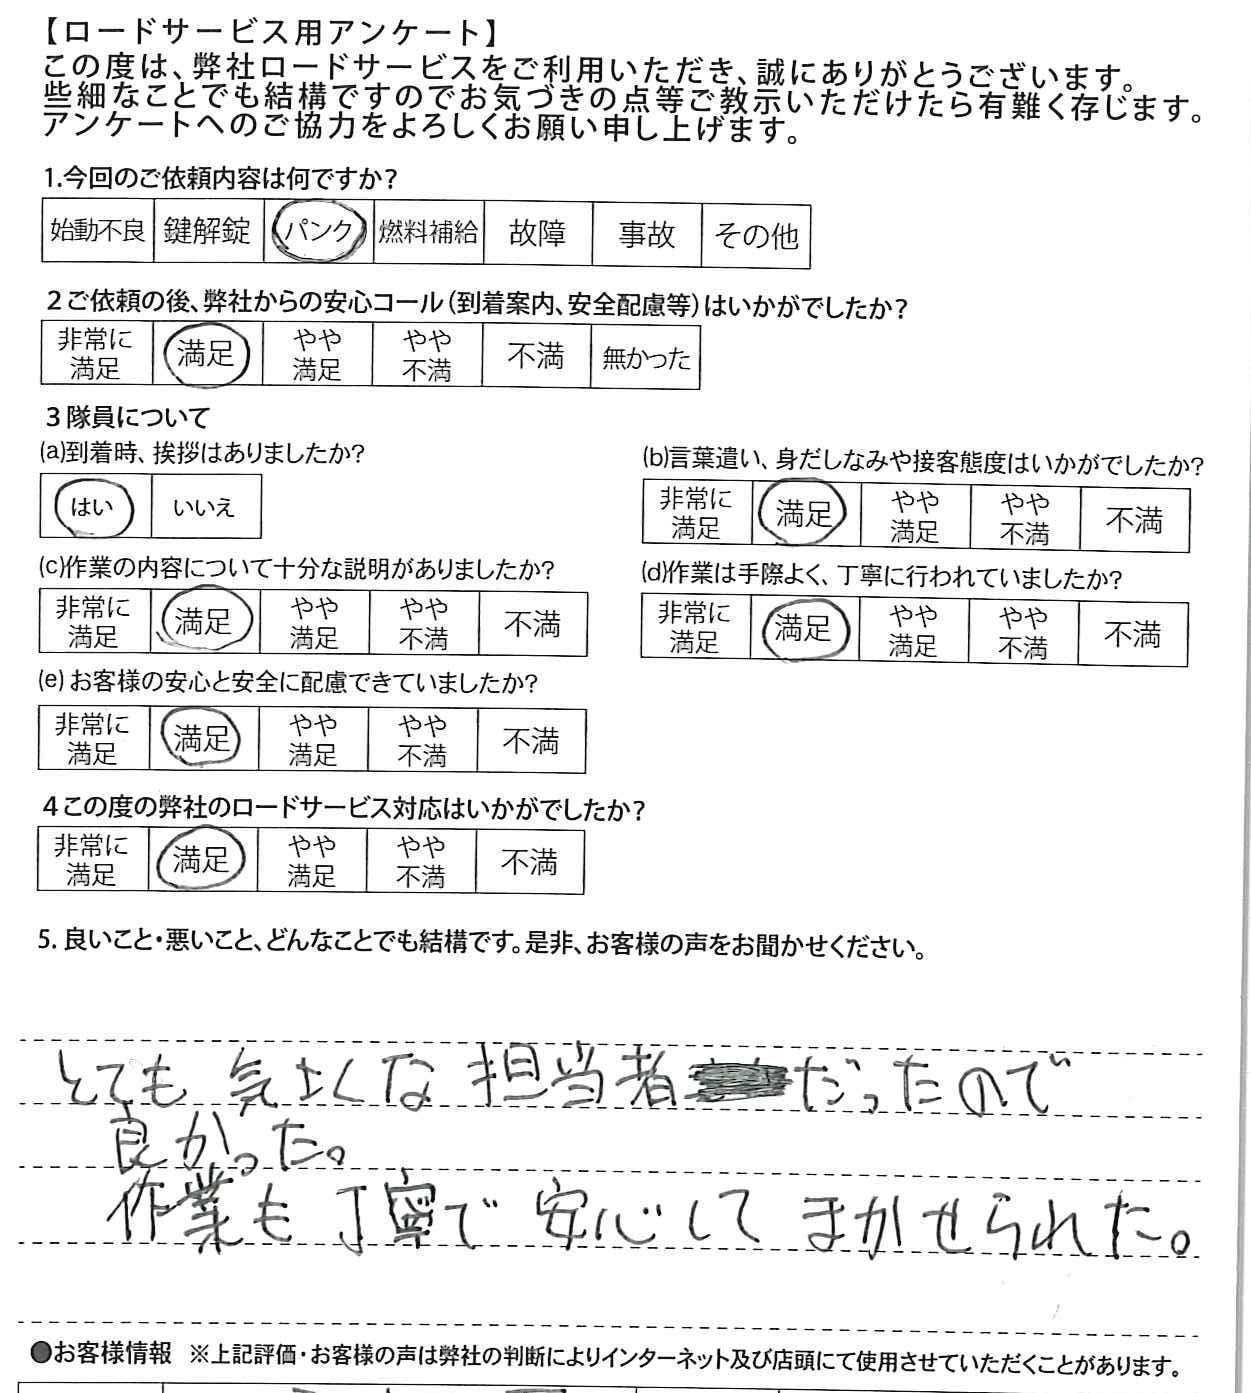 【ロードサービス用アンケート】
この度は、弊社ロードサービスをご利用いただき、誠にありがとうございます。
些細なことでも結構ですのでお気づきの点等ご教示いただけたら有難く存じます。
アンケートへのご協力をよろしくお願い申し上げます。
1.今回のご依頼内容は何ですか?
始動不良 鍵解錠 パンク 燃料補給 故障 事故 その他
2ご依頼の後、弊社からの安心コール(到着案内、安全配慮等)はいかがでしたか?
非常に満足 満足 やや満足 やや不満 不満 無かった
3隊員について
(a)到着時、挨拶はありましたか?
はい いいえ
(b)言葉遣い、身だしなみや接客態度はいかがでしたか?
非常に満足 満足 やや満足 やや不満 不満
(c)作業の内容について十分な説明がありましたか?
非常に満足 満足 やや満足 やや不満 不満
(d)作業は手際よく、丁寧に行われていましたか?
非常に満足 満足 やや満足 やや不満 不満
(e)お客様の安心と安全に配慮できていましたか?
非常に満足 満足 やや満足 やや不満 不満
4この度の弊社のロードサービス対応はいかがでしたか?
非常に満足 満足 やや満足 やや不満 不満
5. 良いこと・悪いこと、どんなことでも結構です。是非、お客様の声をお聞かせください。
とても気さくな担当者だったので
良かった。
作業も丁寧で安心してまかせられた。
●お客様情報 ※上記評価・お客様の声は弊社の判断によりインターネット及び店頭にて使用させていただくことがあります。